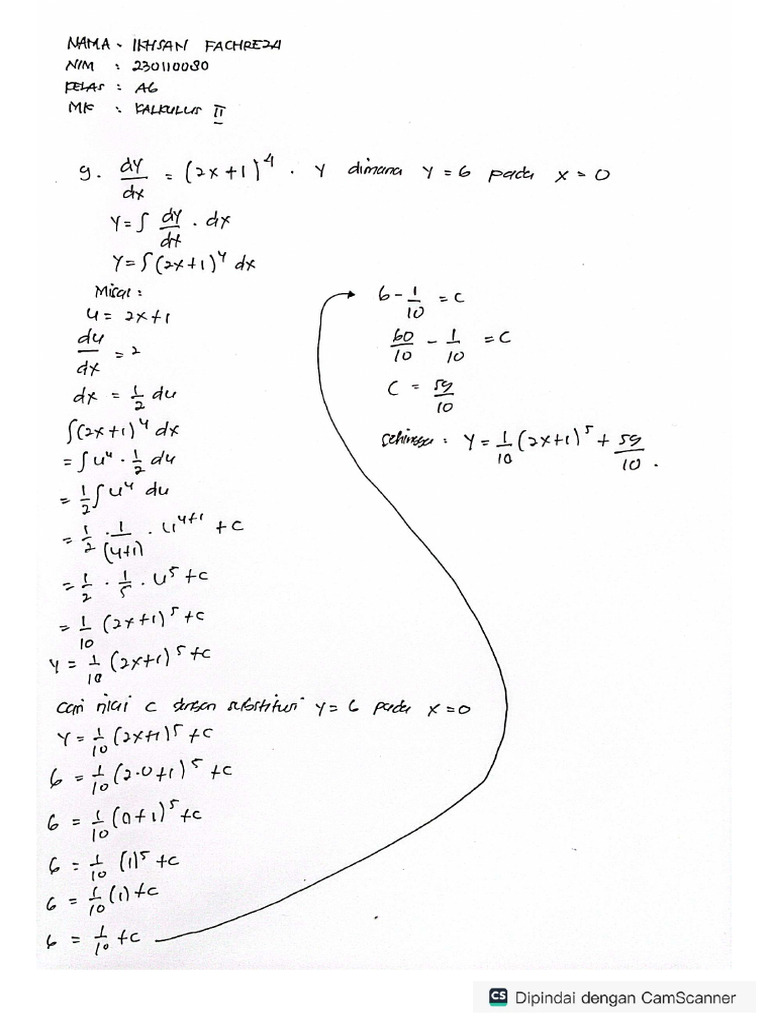 NAMA - IKHSAN FACHREZA
NIM : 230110080
KELAS : A6
MK : KALKULUS II
9. dy/dx = (2x+1)^4 . y dimana y = 6 pada x = 0
Y = ∫ dy/dx . dx
Y = ∫(2x+1)^4 dx
Misal :
u = 2x+1
du/dx = 2
dx = 1/2 du
∫(2x+1)^4 dx
= ∫u^4 . 1/2 du
= 1/2 ∫u^4 du
= 1/2 . 1/(4+1) . u^4+1 + c
= 1/2 . 1/5 . u^5 + c
= 1/10 (2x+1)^5 + c
Y = 1/10 (2x+1)^5 + c
Cari nilai c dengan substitusi y = 6 pada x = 0
Y = 1/10 (2x+1)^5 + c
6 = 1/10 (2.0+1)^5 + c
6 = 1/10 (0+1)^5 + c
6 = 1/10 (1)^5 + c
6 = 1/10 (1) + c
6 = 1/10 + c
6 - 1/10 = c
60/10 - 1/10 = c
C = 59/10
sehingga : Y = 1/10 (2x+1)^5 + 59/10 .
CS Dipindai dengan CamScanner